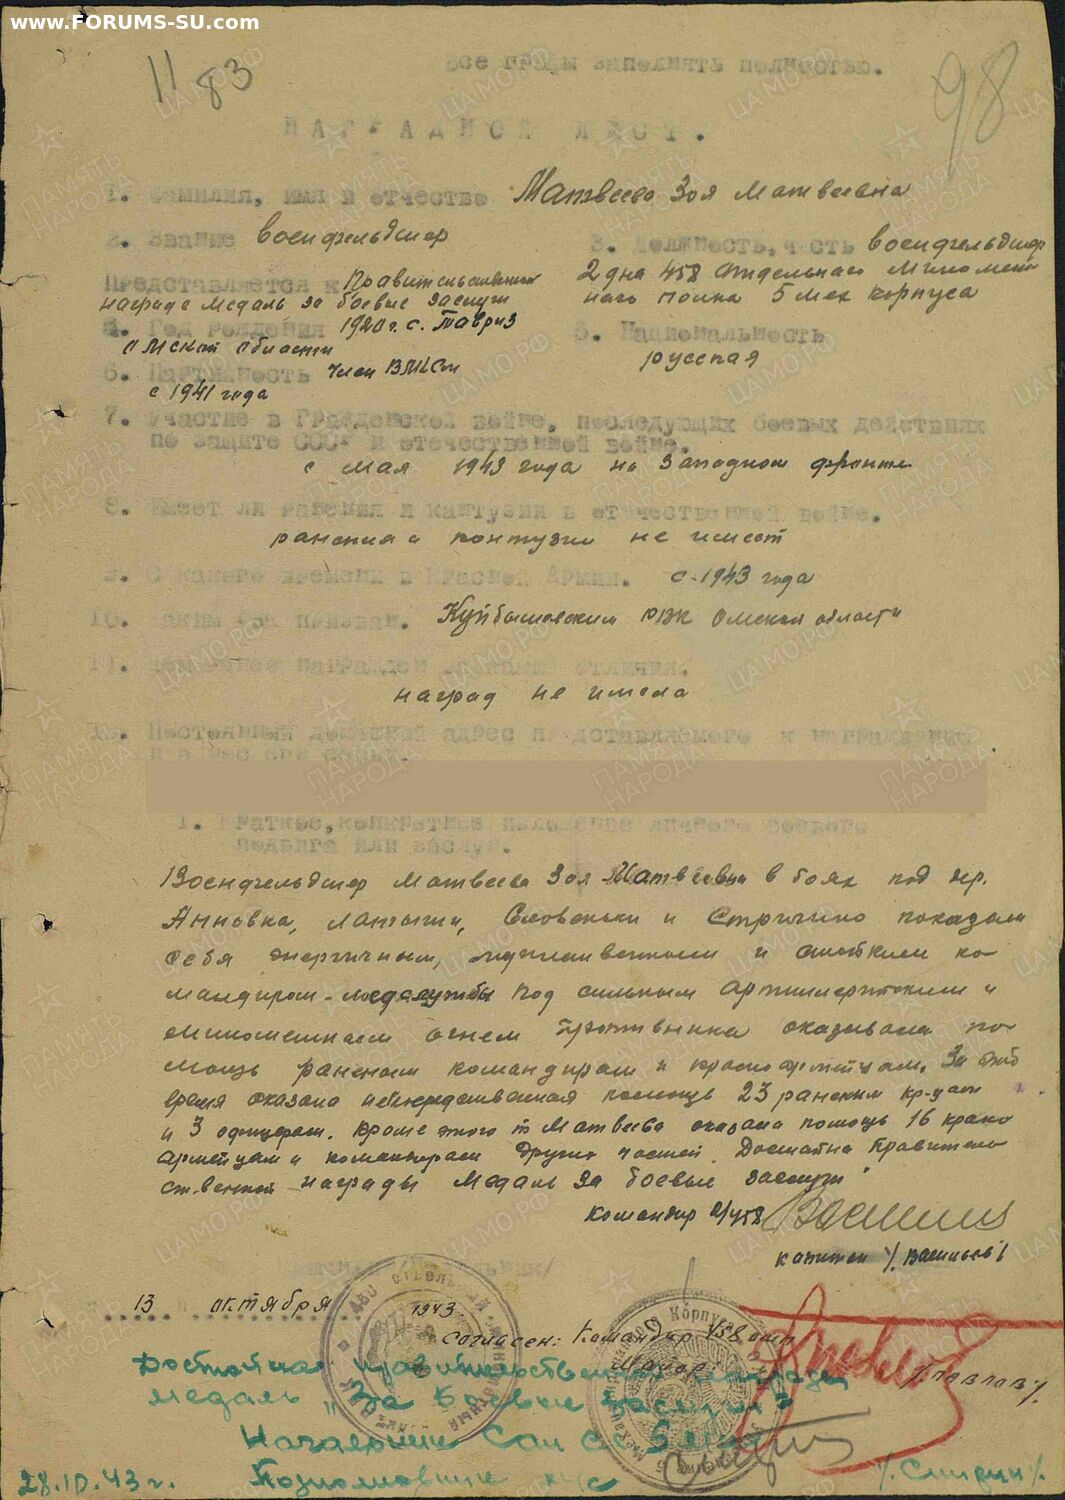 www.FORUMS-SU.com
1183
98
Все графы заполнять полностью.
НАГРАДНОЙ ЛИСТ.
1. Фамилия, имя и отчество Матвеева Зоя Матвеевна
2. Звание военфельдшер
3. Должность, часть военфельдшер
2 дна 458 отдельного миномет
ного полка 5 мех корпуса
Представляется к Правительственной
награде медаль за боевые заслуги
4. Год рождения 1920 г. с. Тавриз
Омской области
5. Национальность
русская
6. Партийность член ВЛКСМ
с 1941 года
7. Участие в Гражданской войне, последующих боевых действиях
по защите СССР и отечественной войне.
с мая 1943 года на Западном фронте
8. Имеет ли ранения и контузии в отечественной войне.
ранения и контузии не имеет
9. С какого времени в Красной Армии. с 1943 года
10. Каким РВК призван. Куйбышевским РВК Омской области
11. Чем ранее награжден за какие отличия.
наград не имела
12. Постоянный домашний адрес представляемого к награждению
и адрес его семьи.
1. Краткое, конкретное изложение личного боевого
подвига или заслуг.
Военфельдшер Матвеева Зоя Матвеевна в боях под дер.
Анновка, Латыши, и Стригино показала
себя энергичным, и стойким ко-
мандиром медслужбы под сильным артиллерийским и
минометным огнем противника оказывала по-
мощь раненым командирам и красноармейцам. За это
время оказана непосредственная помощь 23 раненым кр-цам
и 3 офицерам. Кроме этого т Матвеева оказала помощь 16 красно
армейцам и командирам других частей. Достойна Правитель
ственной награды медаль за боевые заслуги
Командир 2/458
капитан /Васильев/
13 октября 1943
Согласен: Командир 458 омп
Майор /Павлов/
Достойна правительственной награды
медаль „За боевые заслуги"
Начальник Сан
28.10.43 г. /Смирин/
ЦА МО РФ
ПАМЯТЬ НАРОДА